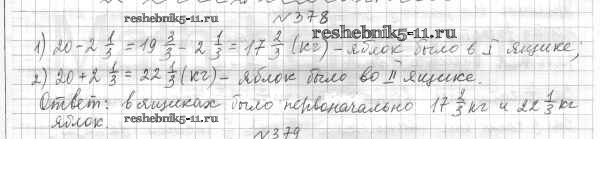 №378
reshebnik5-11.ru
1) 20 - 2 1/3 = 19 3/3 - 2 1/3 = 17 2/3 (кг) - яблок было в I ящике;
reshebnik5-11.ru
2) 20 + 2 1/3 = 22 1/3 (кг) - яблок было во II ящике.
Ответ: в ящиках было первоначально 17 2/3 кг и 22 1/3 кг
яблок.
reshebnik5-11.ru
№379